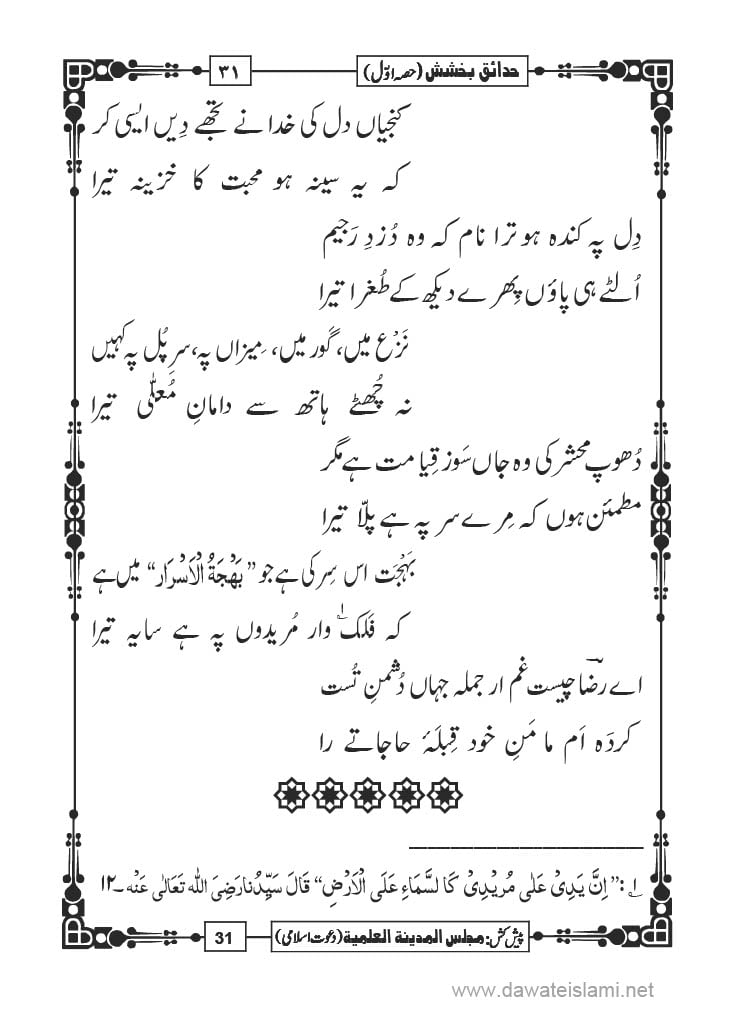 حدائق بخشش (حصہ اوّل)
۳۱
کنجیاں دل کی خدا نے تجھے دِیں ایسی کر
کہ یہ سینہ ہو محبت کا خزینہ تیرا
دِل پہ کندہ ہو ترا نام کہ وہ دُزدِ رَجیم
اُلٹے ہی پاؤں پِھرے دیکھ کے طُغرا تیرا
نَزْع میں، گَور میں، مِیزاں پہ، سرِ پُل پہ کہیں
نہ چُھٹے ہاتھ سے دامانِ مُعلّٰی تیرا
دُھوپ محشر کی وہ جاں سَوز قِیامت ہے مگر
مطمئن ہوں کہ مِرے سر پہ ہے پلّا تیرا
بَہْجَت اس سِر کی ہے جو ”بَهْجَةُ الْاَسْرَار“ میں ہے
کہ فَلَک؂۱ وار مُریدوں پہ ہے سایہ تیرا
اے رضاؔ چیست غم ار جملہ جہاں دُشمنِ تُست
کردَہ اَم ما مَنِ خود قِبلَۂ حاجاتے را
؂۱: ”اِنَّ یَدِیْ عَلٰی مُرِیْدِیْ کَالسَّمَاءِ عَلَی الْاَرْضِ“ قَالَ سَیِّدُنَا رَضِیَ اللّٰه تَعَالٰی عَنْه ۔۱۲
پیش کش: مجلس المدینة العلمیة (دعوت اسلامی)
31
www.dawateislami.net